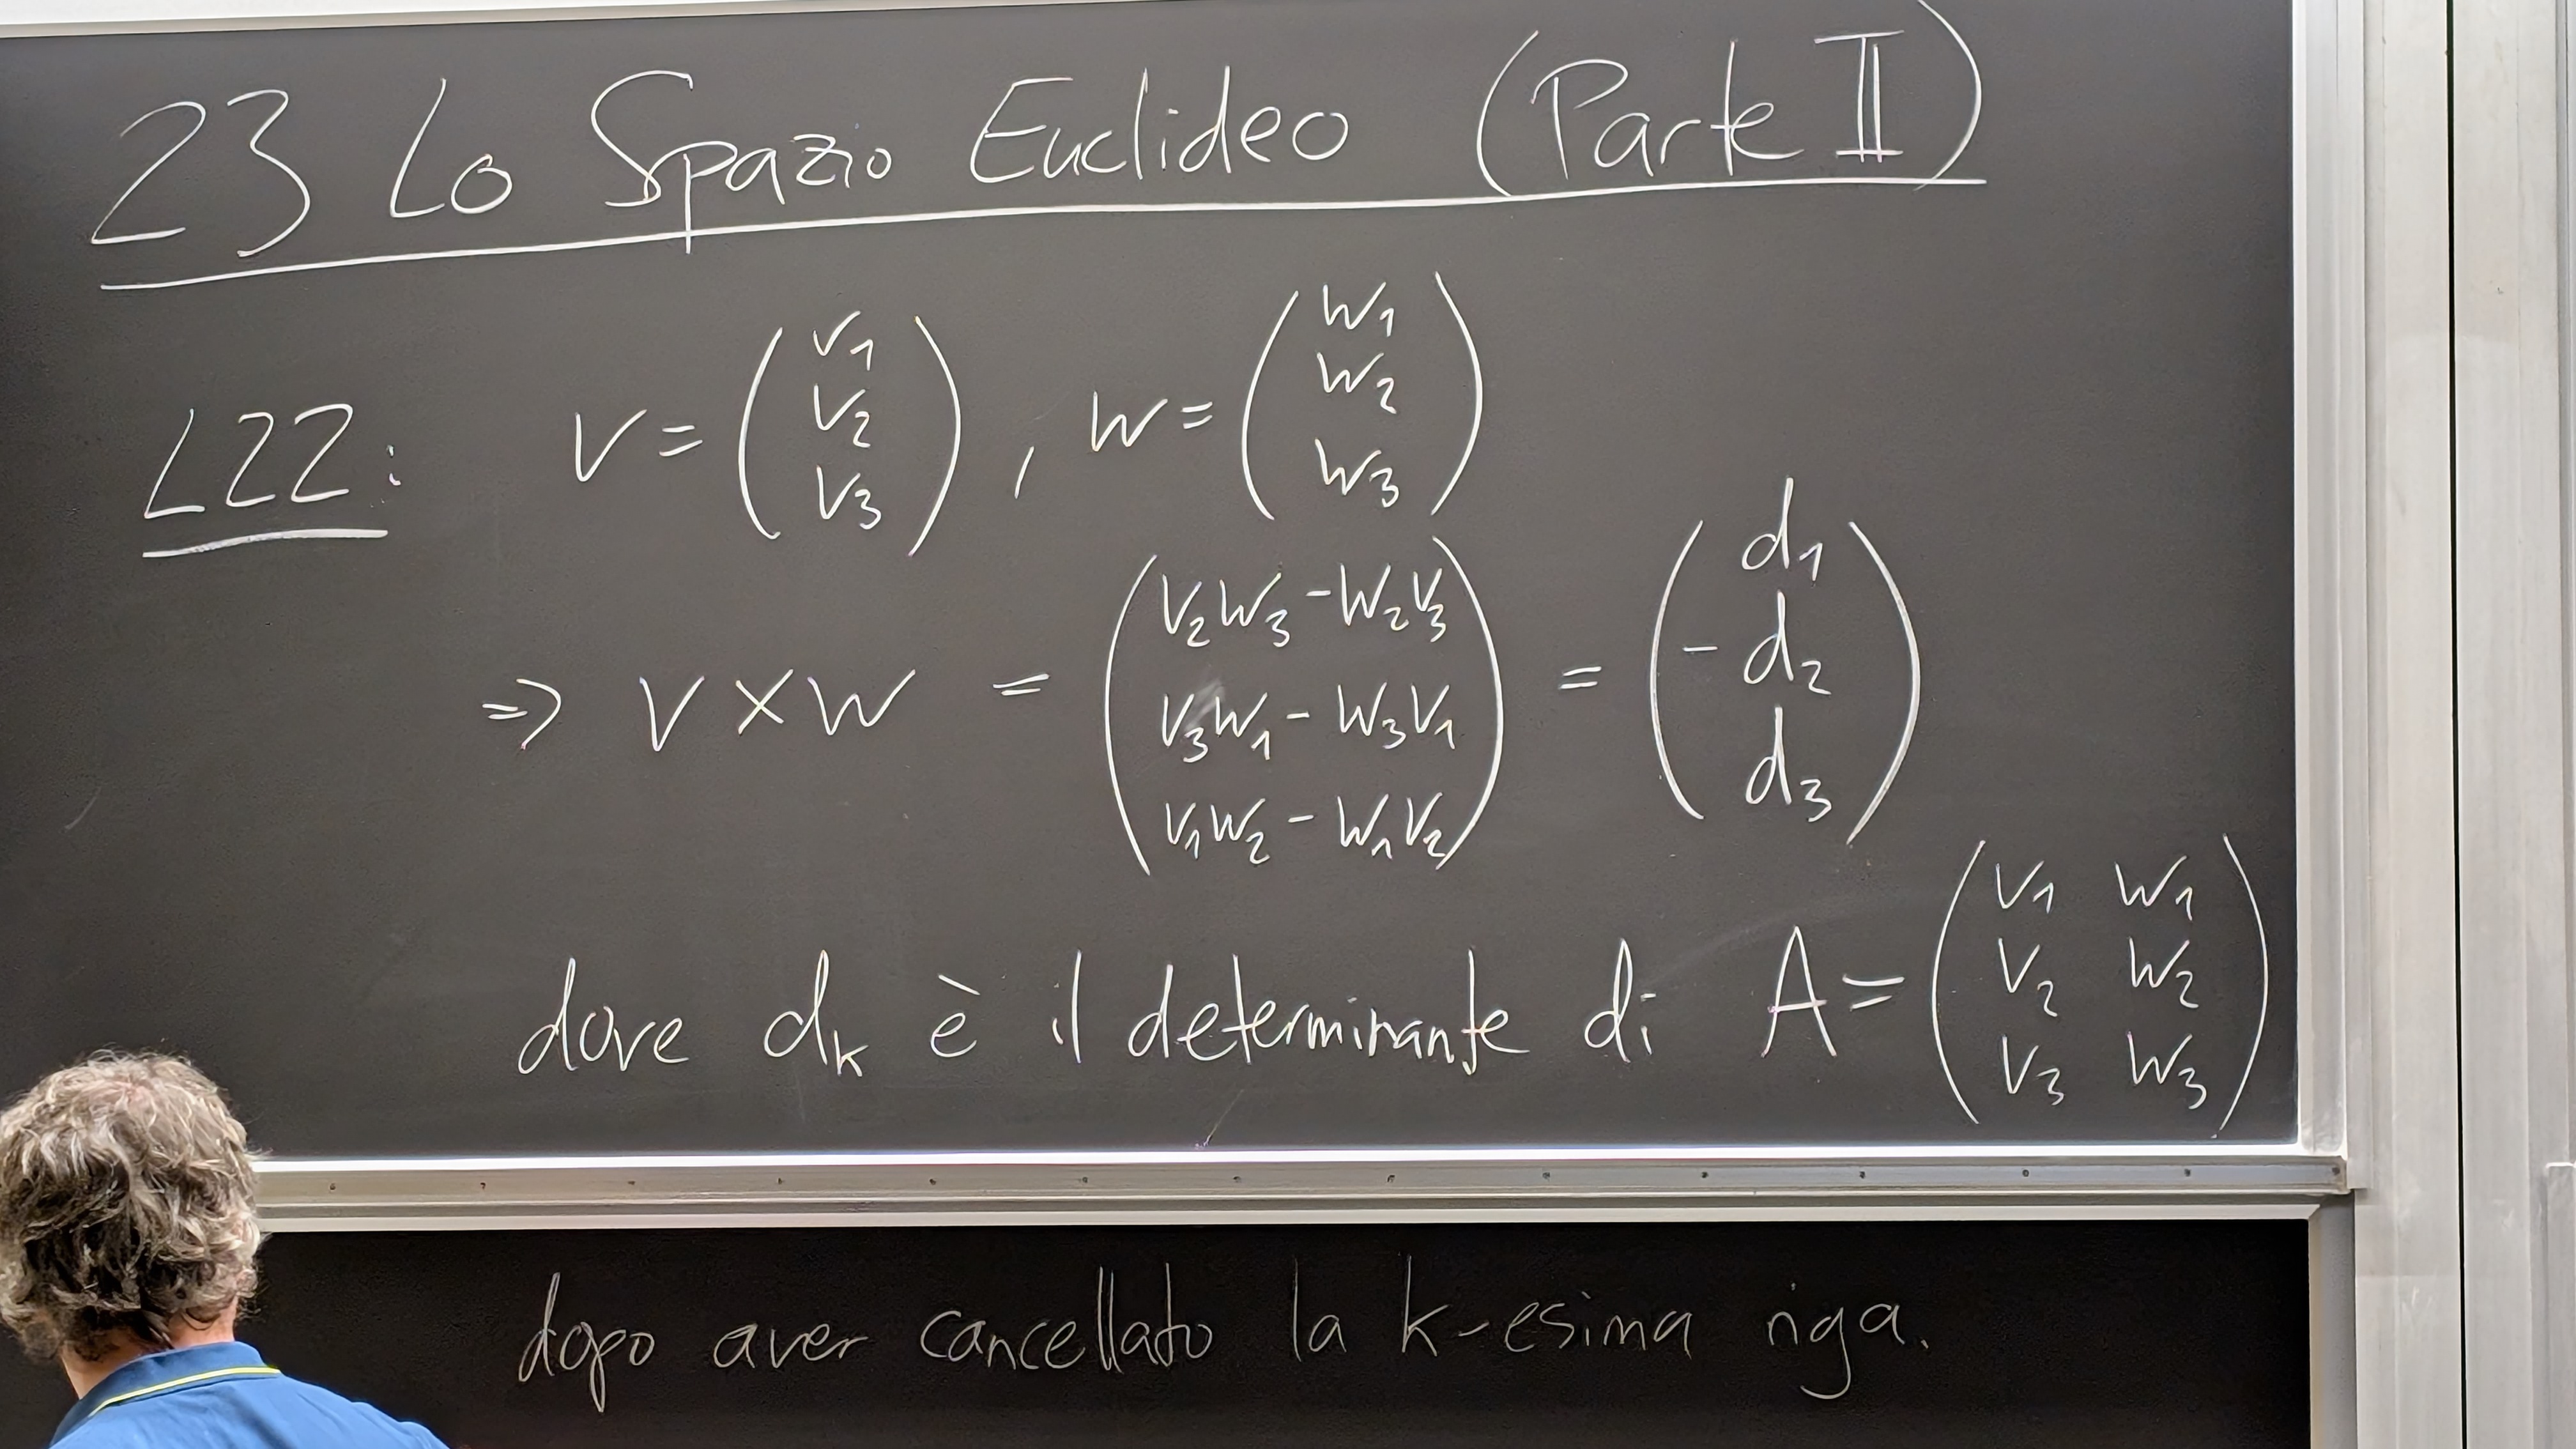 23 Lo Spazio Euclideo (Parte II)
L22: v = (v₁ v₂ v₃), w = (w₁ w₂ w₃)
⇒ v × w = (v₂w₃ - w₂v₃ v₃w₁ - w₃v₁ v₁w₂ - w₁v₂) = (d₁ -d₂ d₃)
dove dₖ è il determinante di A = (v₁ w₁ v₂ w₂ v₃ w₃)
dopo aver cancellato la k-esima riga.